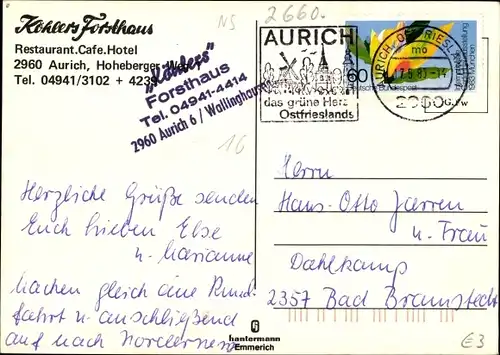 Köhlers Forsthaus
Restaurant.Cafe.Hotel
2960 Aurich, Hoheberger
Tel. 04941/3102 + 423
„Köhlers"
Forsthaus
Tel. 04941-4414
2960 Aurich 6 / Wallinghausen
NS
2660.
16
AURICH
das grüne Herz
Ostfrieslands
60
Deutsche Bundespost
AURICH, OSTFRIESL
mo
2960
Herzliche Grüße senden
Euch lieben Else
u. Marianne
Machen gleich eine Rund-
fahrt u. anschließend
auf nach Norderney
Herrn
Hans-Otto Jarren
u. Frau
Dahlkamp
2357 Bad Bramstedt
hantermann
Emmerich
€3